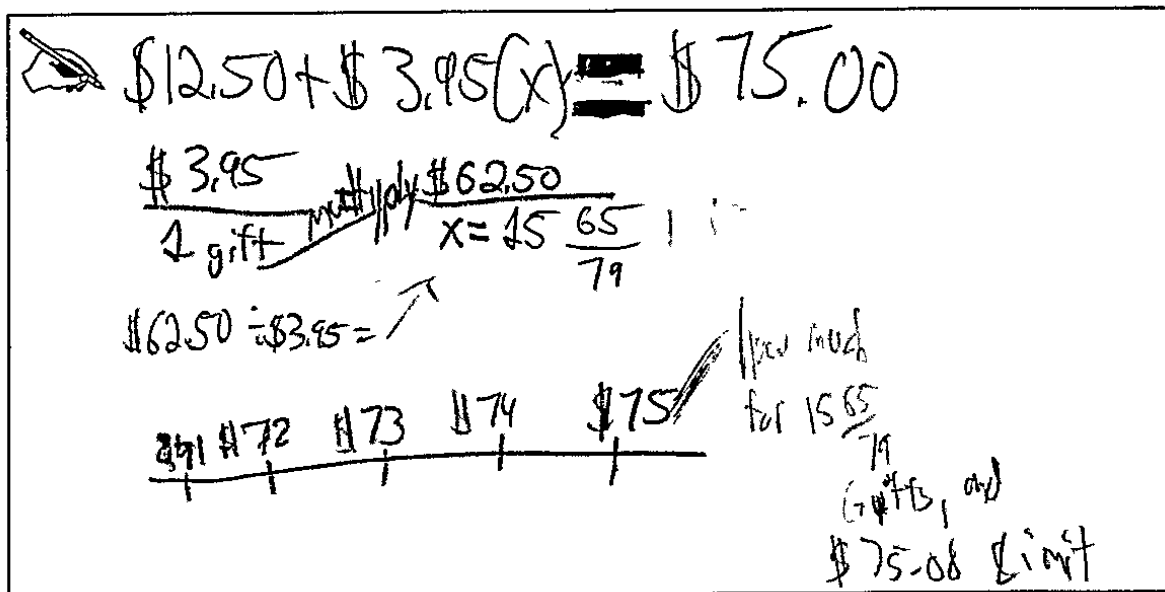 $12.50 + $3.95(x) = $75.00
$3.95 multiply $62.50
1 gift x = 15 65/79
$62.50 ÷ $3.95 =
$72 $73 $74 $75
much
for 15 65/79
Gifts, and
$75.00 Limit